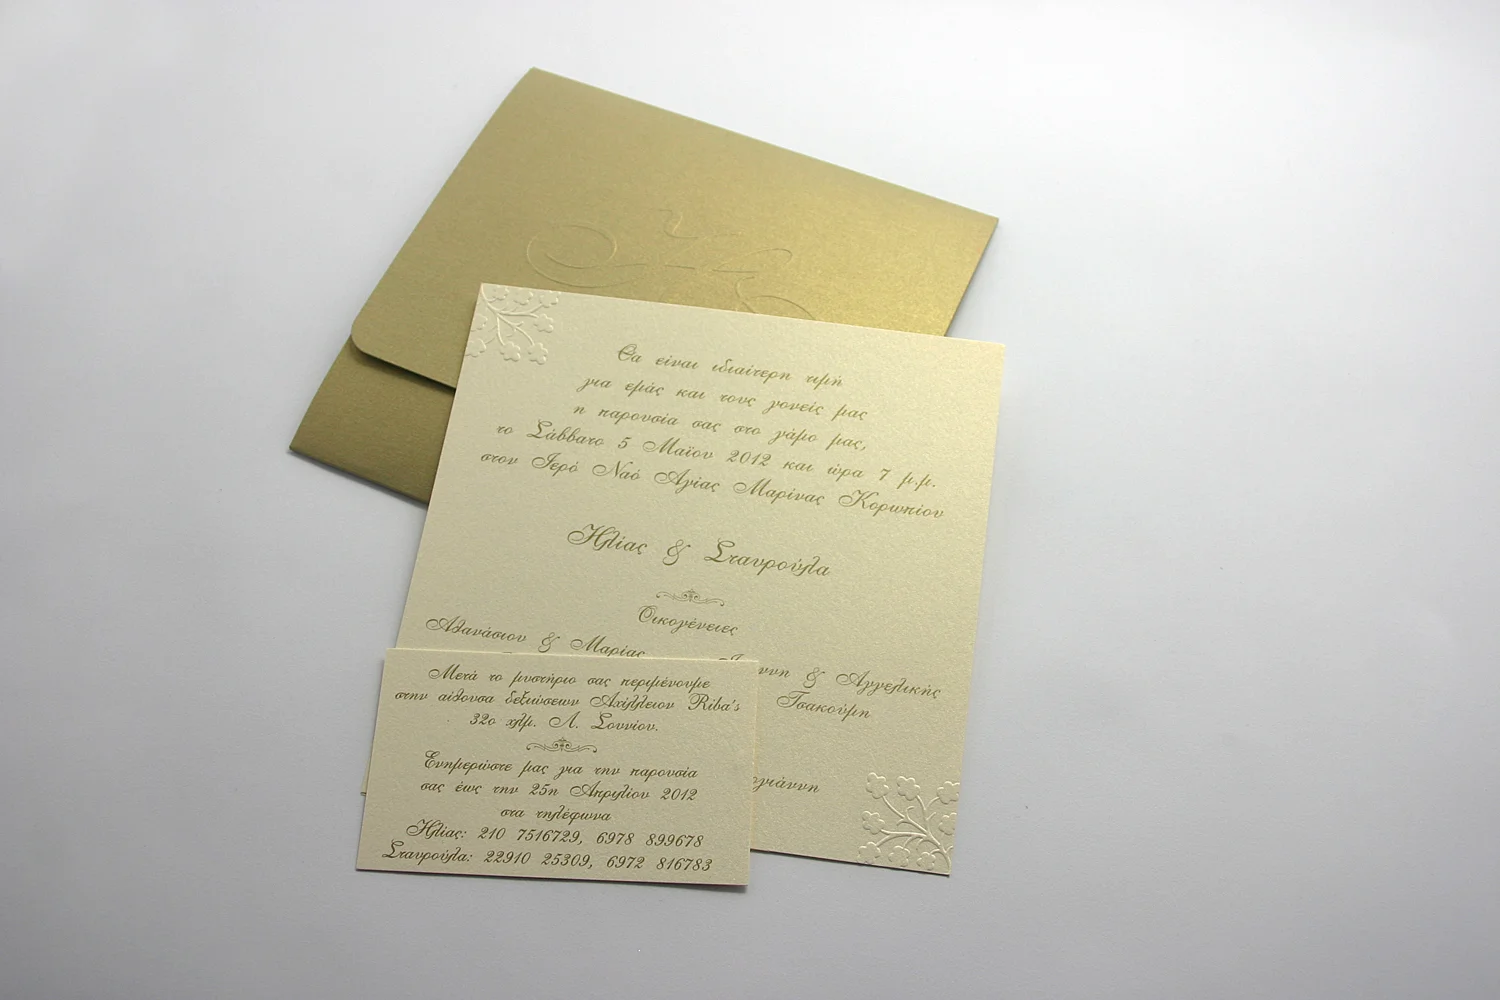 Θα είναι ιδιαίτερη τιμή
για εμάς και τους γονείς μας
η παρουσία σας στο γάμο μας,
το Σάββατο 5 Μαΐου 2012 και ώρα 7 μ.μ.
στον Ιερό Ναό Αγίας Μαρίνας Κορωπίου
Ηλίας & Σταυρούλα
Οικογένειες
Αθανάσιου & Μαρίας
& Αγγελικής
Τσακούμη
Μετά το μυστήριο σας περιμένουμε
στην αίθουσα δεξιώσεων Αχίλλειον Riba's
32ο χλμ. Λ. Σουνίου.
Ενημερώστε μας για την παρουσία
σας έως την 25η Απριλίου 2012
στα τηλέφωνα
Ηλίας: 210 7516729, 6978 899678
Σταυρούλα: 22910 25309, 6972 816783